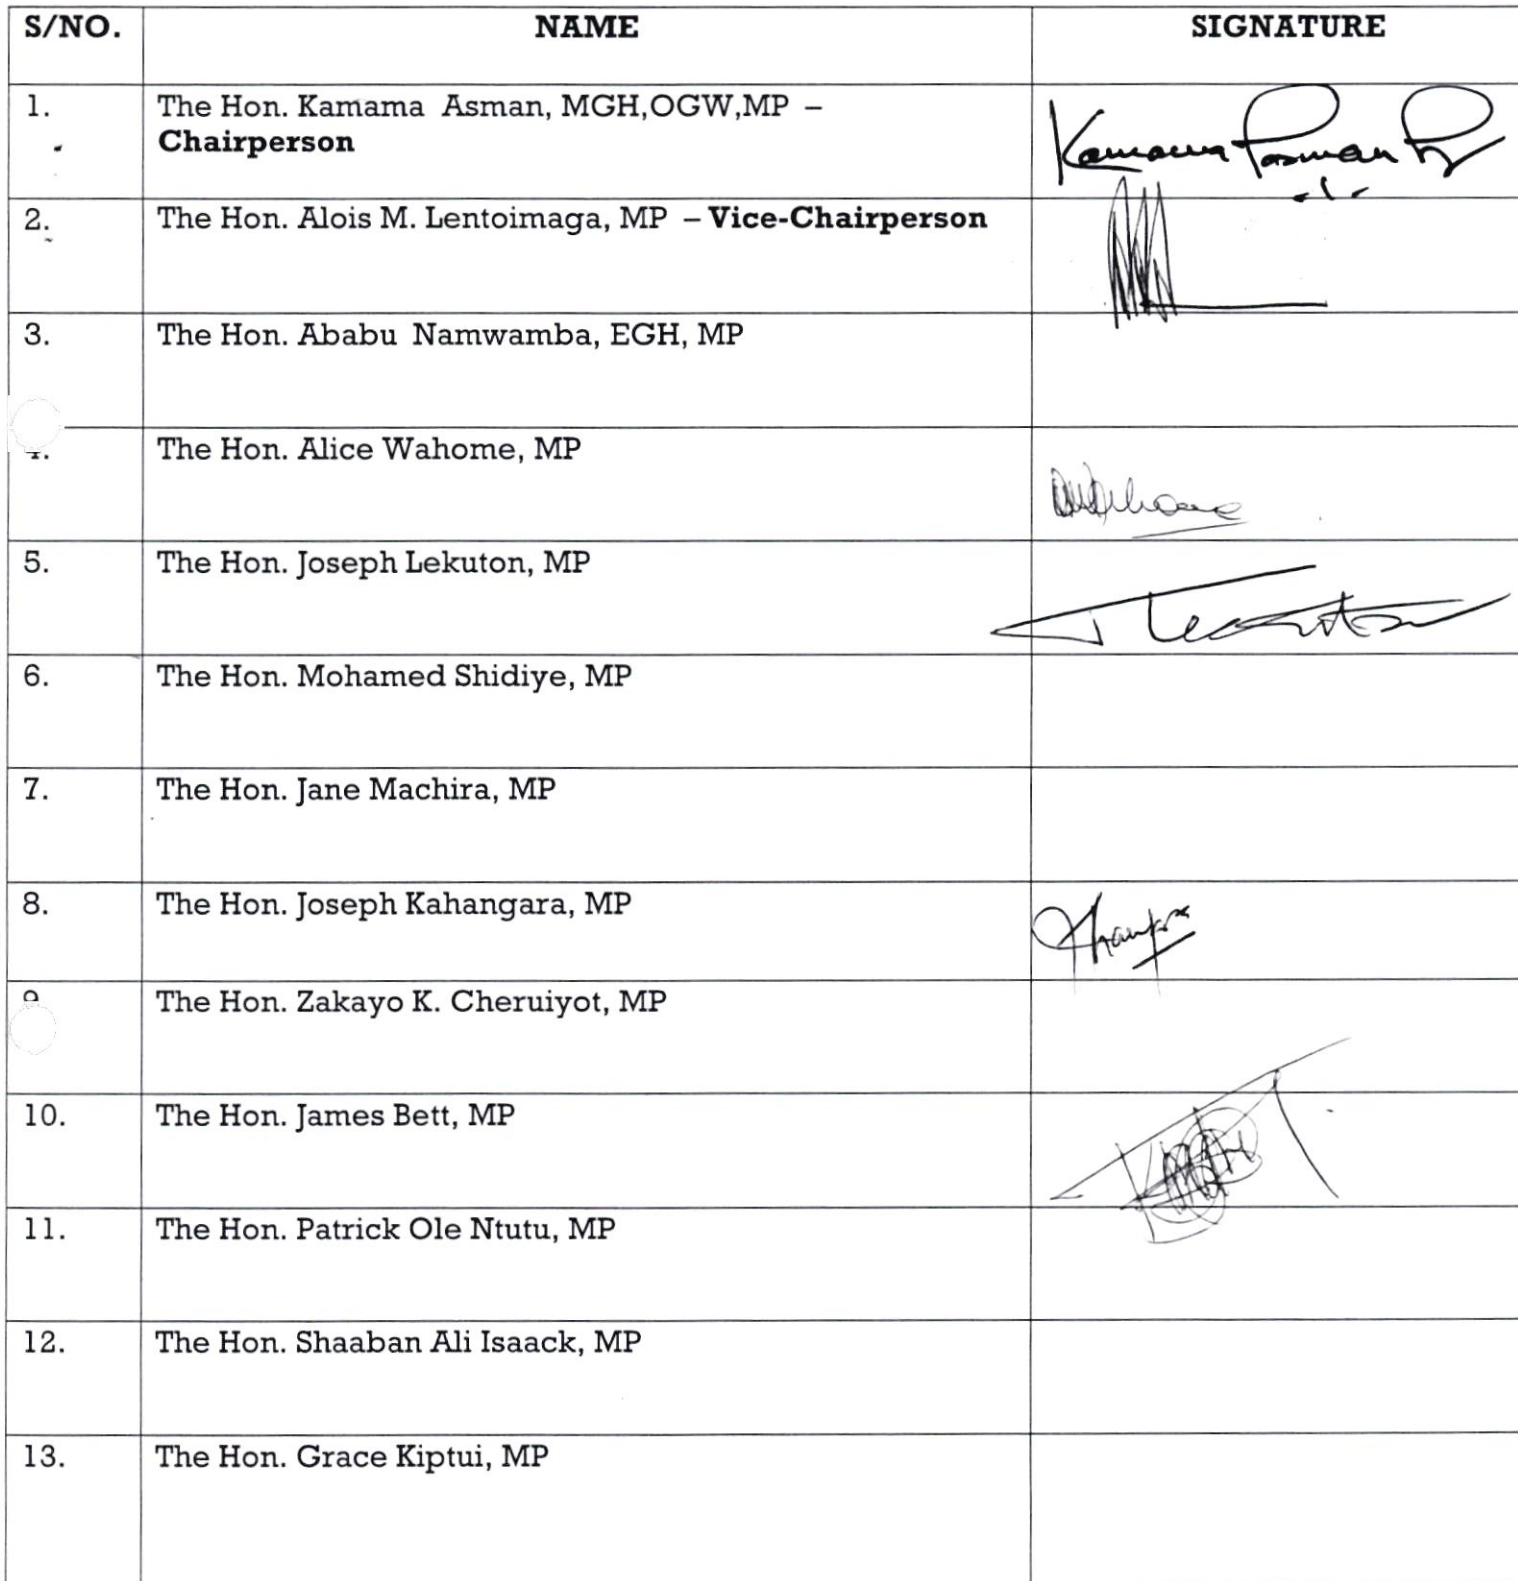 S/NO. NAME SIGNATURE
1. The Hon. Kamama Asman, MGH,OGW,MP –
Chairperson
Kamama Asman
2. The Hon. Alois M. Lentoimaga, MP – Vice-Chairperson
3. The Hon. Ababu Namwamba, EGH, MP
The Hon. Alice Wahome, MP
5. The Hon. Joseph Lekuton, MP
6. The Hon. Mohamed Shidiye, MP
7. The Hon. Jane Machira, MP
8. The Hon. Joseph Kahangara, MP
The Hon. Zakayo K. Cheruiyot, MP
10. The Hon. James Bett, MP
11. The Hon. Patrick Ole Ntutu, MP
12. The Hon. Shaaban Ali Isaack, MP
13. The Hon. Grace Kiptui, MP